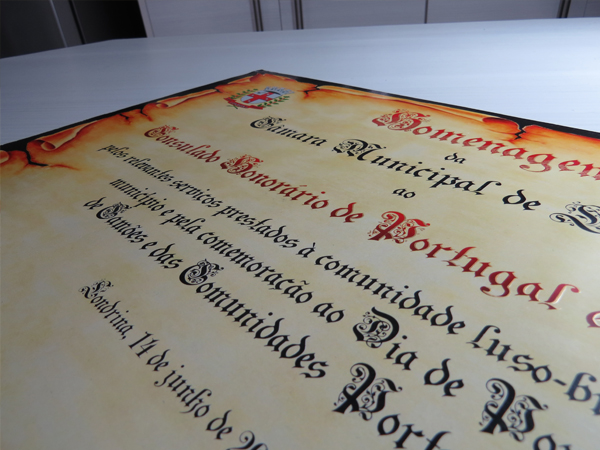 Homenagem
da
Câmara Municipal de
ao
Consulado Honorário de Portugal
pelos relevantes serviços prestados à comunidade luso-br
município e pela comemoração ao Dia de
de Camões e das Comunidades Port
Londrina, 14 de junho de